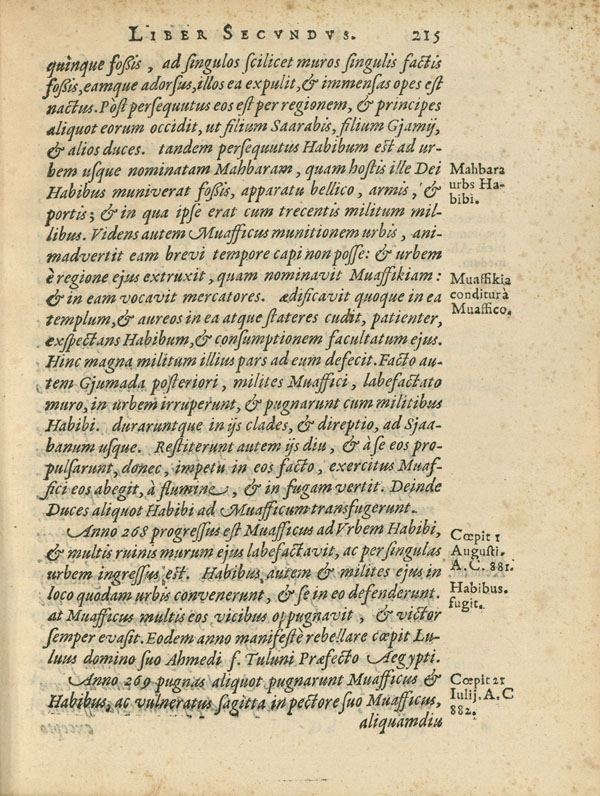 LIBER SECVNDVS. 215
quinque foßis, ad singulos scilicet muros singulis factis
foßis, eamque adorsus, illos ea expulit, & immensas opes est
nactus. Post persequutus eos est per regionem, & principes
aliquot eorum occidit, ut filium Saarabis, filium Gjamij,
& alios duces. tandem persequutus Habibum est ad ur-
bem usque nominatam Mahbaram, quam hostis ille Dei
Habibus muniverat foßis, apparatu bellico, armis, &
portis; & in qua ipse erat cum trecentis militum mil-
libus. Videns autem Muafficus munitionem urbis, ani-
madvertit eam brevi tempore capi non posse: & urbem
è regione ejus extruxit, quam nominavit Muaffikiam:
& in eam vocavit mercatores. ædificavit quoque in ea
templum, & aureos in ea atque stateres cudit, patienter,
exspectans Habibum, & consumptionem facultatum ejus.
Hinc magna militum illius pars ad eum defecit. Facto au-
tem Gjumada posteriori, milites Muaffici, labefactato
muro, in urbem irruperunt, & pugnarunt cum militibus
Habibi. duraruntque in ijs clades, & direptio, ad Sjaa-
banum usque. Restiterunt autem ijs diu, & à se eos pro-
pulsarunt, donec, impetu in eos facto, exercitus Muaf-
fici eos abegit, à flumine, & in fugam vertit. Deinde
Duces aliquot Habibi ad Muafficum transfugerunt.
Anno 268 progressus est Muafficus ad Vrbem Habibi,
& multis ruinis murum ejus labefactavit, ac per singulas
urbem ingressus est. Habibus autem & milites ejus in
loco quodam urbis convenerunt, & se in eo defenderunt.
at Muafficus multis eos vicibus oppugnavit, & victor
semper evasit. Eodem anno manifestè rebellare cœpit Lu-
luus domino suo Ahmedi f. Tuluni Præfecto Aegypti.
Anno 269 pugnas aliquot pugnarunt Muafficus &
Habibus, ac vulneratus sagitta in pectore suo Muafficus,
aliquamdiu
Mahbara
urbs Ha-
bibi.
Muaffikia
conditur à
Muaffico.
Cœpit 1
Augusti.
A. C. 881.
Habibus.
fugit.
Cœpit 21
Iulij. A. C
882.
excepto